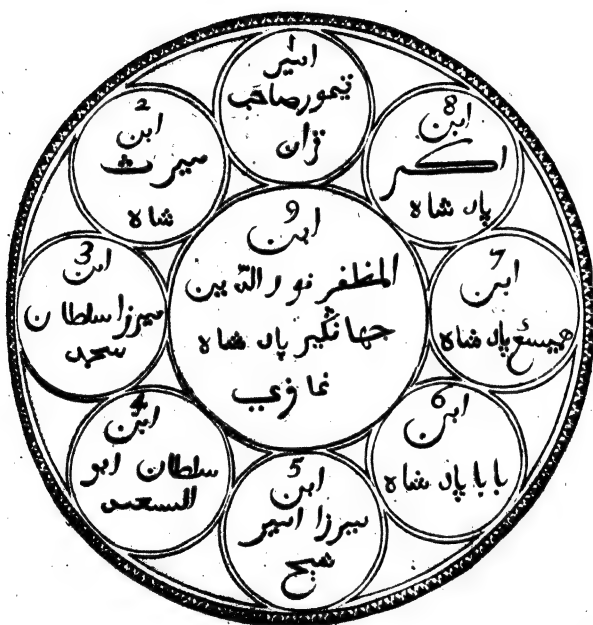 1
امير
تيمور صاحب
قران
2
ابن
ميرن
شاه
3
ابن
ميرزا سلطان
محمد
4
ابن
سلطان ابو
السعيد
5
ابن
ميرزا امير
شيخ
6
ابن
بابا پاد شاه
7
ابن
پاد شاه
8
ابن
اكبر
پاد شاه
9
ابن
المظفر نور الدين
جهانگير پاد شاه
غازي